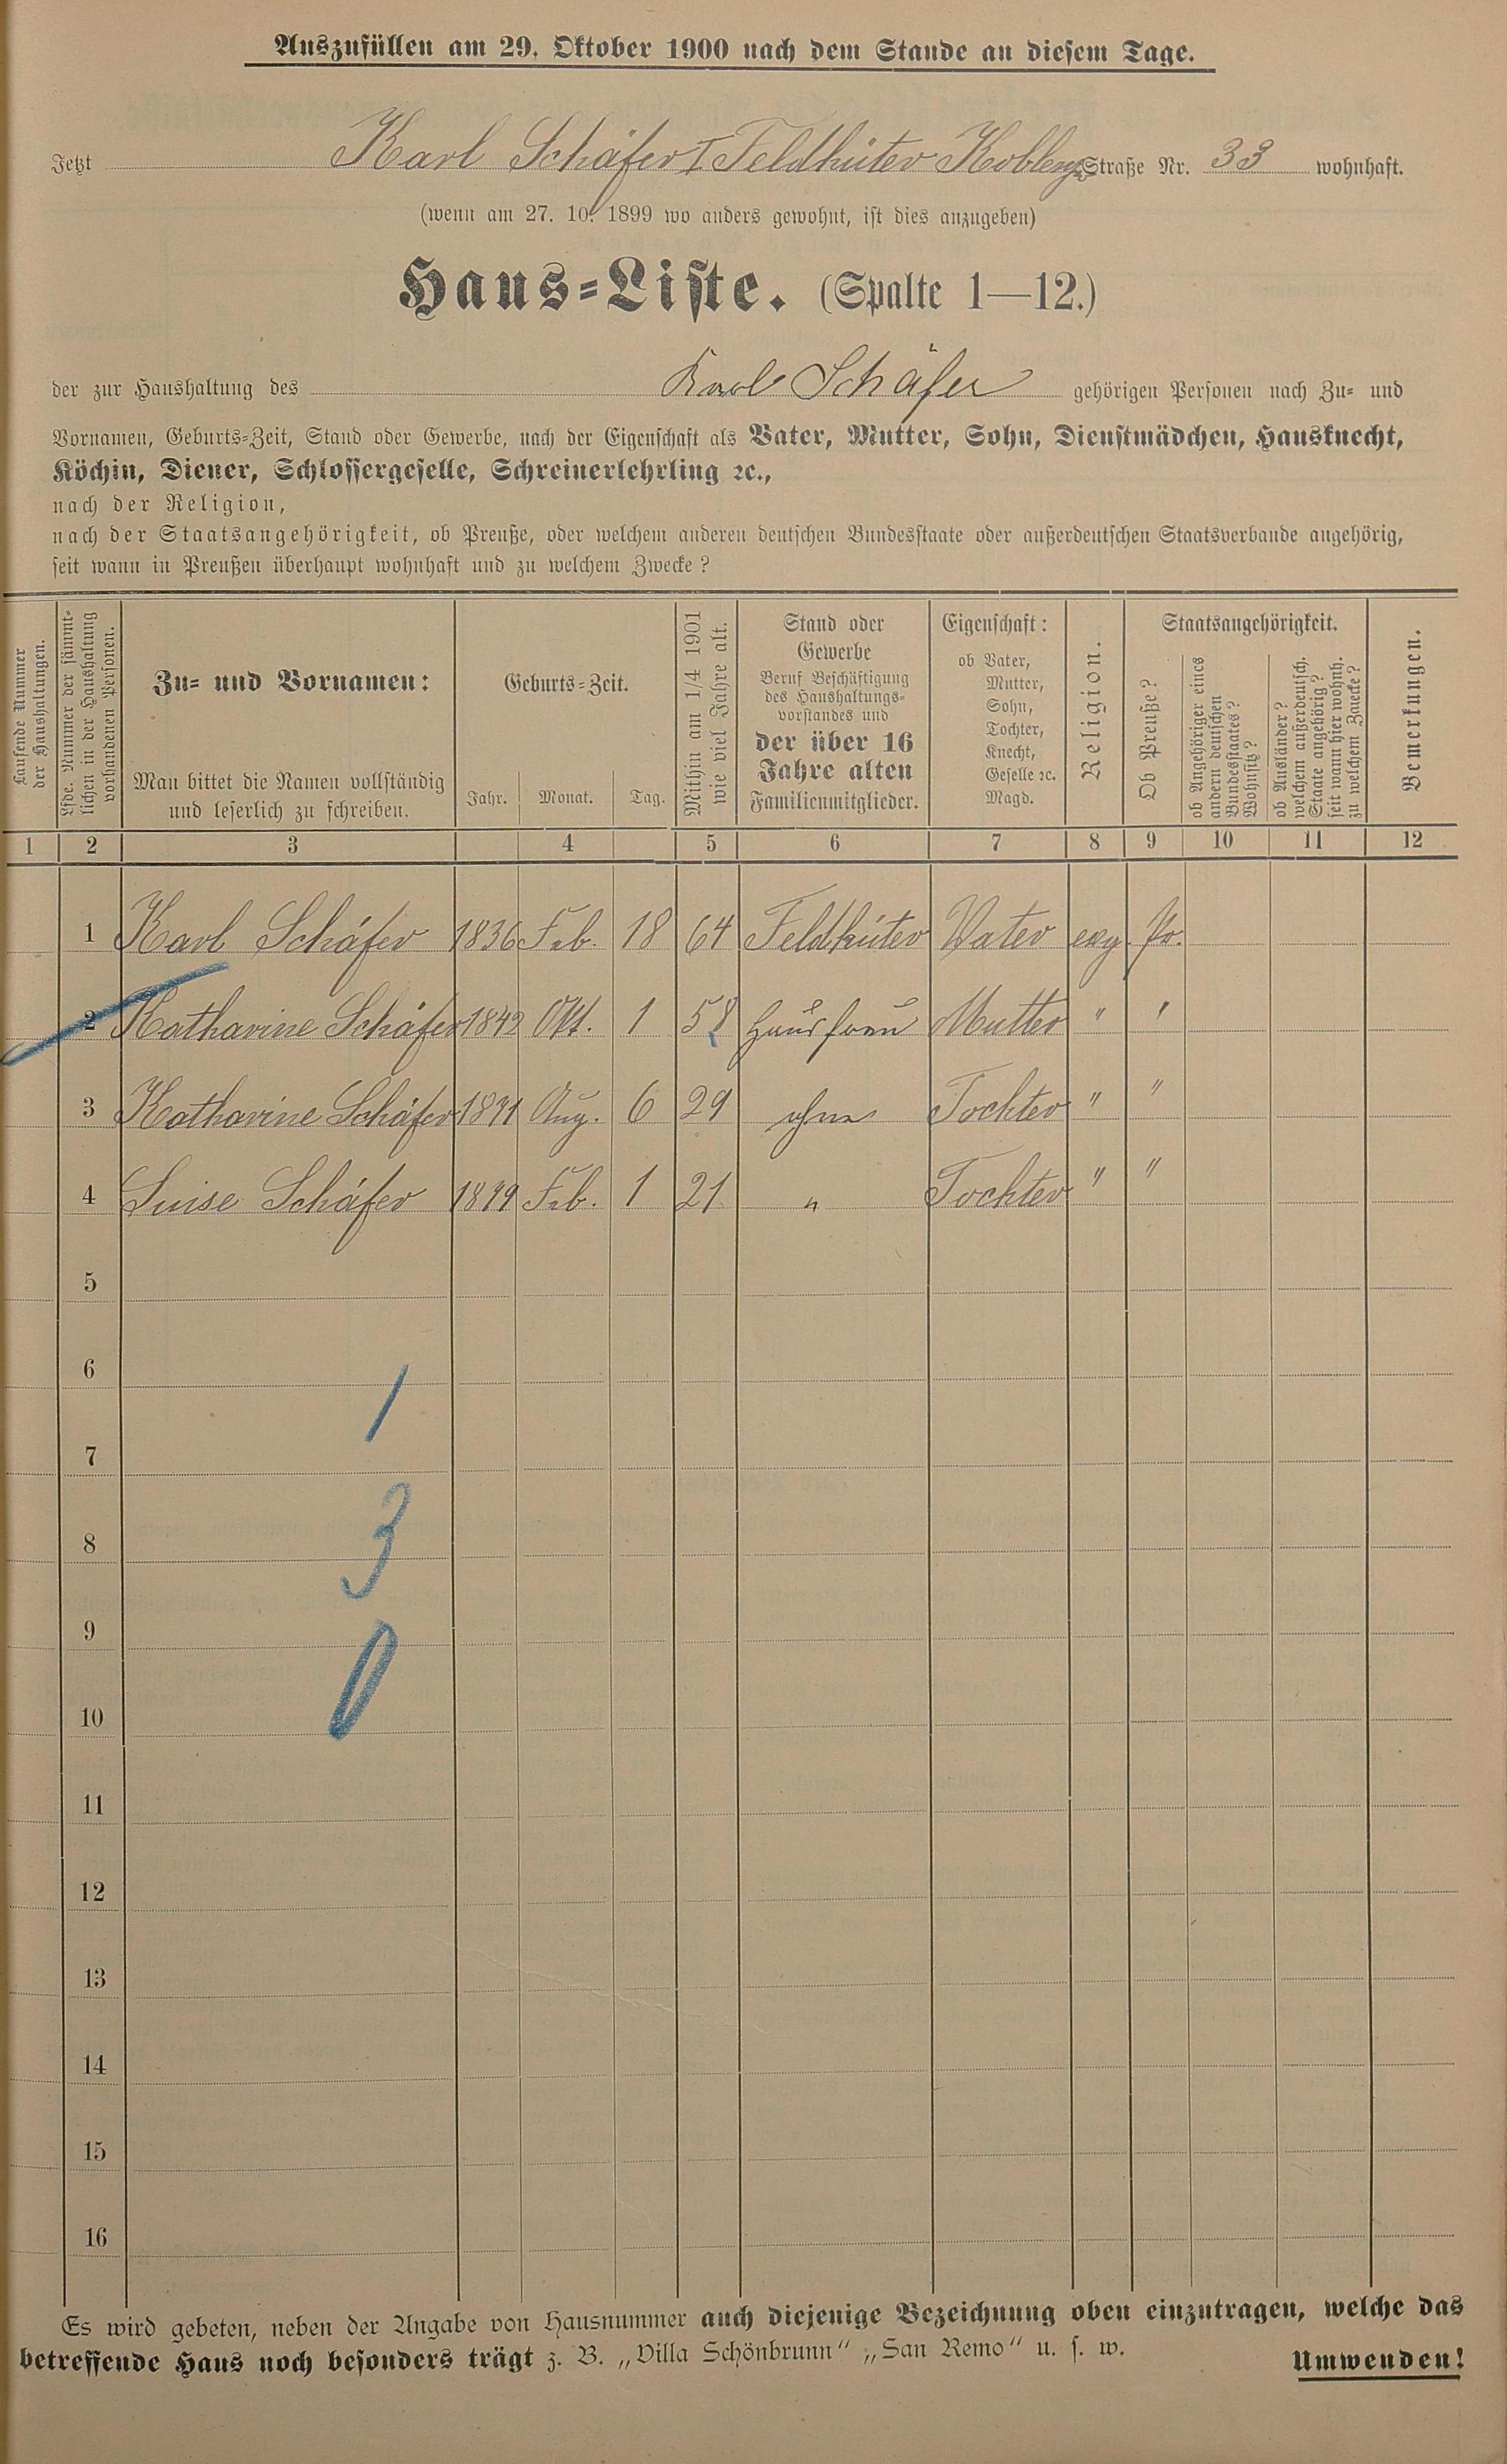 Auszufüllen am 29. Oktober 1900 nach dem Stande an diesem Tage.
Jetzt Karl Schäfer I Feldhüter Koblenzer Straße Nr. 33 wohnhaft.
(wenn am 27. 10. 1899 wo anders gewohnt, ist dies anzugeben)
Haus=Liste. (Spalte 1—12.)
der zur Haushaltung des Karl Schäfer gehörigen Personen nach Zu- und
Vornamen, Geburts=Zeit, Stand oder Gewerbe, nach der Eigenschaft als Vater, Mutter, Sohn, Dienstmädchen, Hausknecht,
Köchin, Diener, Schlossergeselle, Schreinerlehrling ꝛc.,
nach der Religion,
nach der Staatsangehörigkeit, ob Preuße, oder welchem anderen deutschen Bundesstaate oder außerdeutschen Staatsverbande angehörig,
seit wann in Preußen überhaupt wohnhaft und zu welchem Zwecke?
Laufende Nummer
der Haushaltungen.
Lfde. Nummer der sämmt-
lichen in der Haushaltung
vorhandenen Personen.
Zu= und Vornamen:
Man bittet die Namen vollständig
und leserlich zu schreiben.
Geburts=Zeit.
Jahr. Monat. Tag.
Mithin am 1/4 1901
wie viel Jahre alt.
Stand oder
Gewerbe
Beruf Beschäftigung
des Haushaltungs-
vorstandes und
der über 16
Jahre alten
Familienmitglieder.
Eigenschaft:
ob Vater,
Mutter,
Sohn,
Tochter,
Knecht,
Geselle ꝛc.
Magd.
Religion.
Staatsangehörigkeit.
Ob Preuße?
ob Angehöriger eines
andern deutschen
Bundesstaates?
Wohnsitz?
ob Ausländer?
welchem außerdeutsch.
Staate angehörig?
seit wann hier wohnh.
zu welchem Zwecke?
Bemerkungen.
1 2 3 4 5 6 7 8 9 10 11 12
1 Karl Schäfer 1836 Feb. 18 64 Feldhüter Vater evg. Pr.
2 Katharine Schäfer 1842 Okt. 1 58 Hausfrau Mutter " "
3 Katharine Schäfer 1871 Aug. 6 29 ohne Tochter " "
4 Luise Schäfer 1879 Feb. 1 21 " Tochter " "
5
6
1
7
3
8
9
0
10
11
12
13
14
15
16
Es wird gebeten, neben der Angabe von Hausnummer auch diejenige Bezeichnung oben einzutragen, welche das
betreffende Haus noch besonders trägt z. B. „Villa Schönbrunn“ „San Remo“ u. s. w. Umwenden!